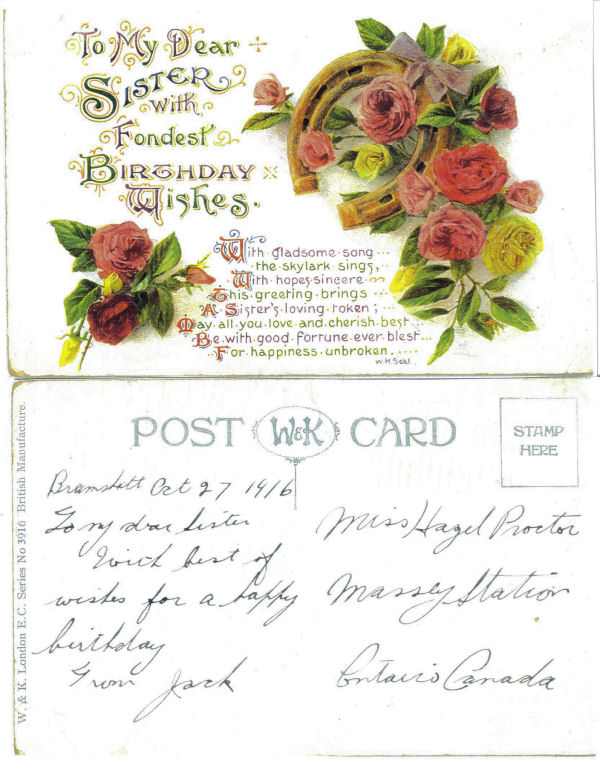 To My Dear
SISTER
with
Fondest
BIRTHDAY
Wishes.
With gladsome song...
the skylark sings,
With hopes sincere
This greeting brings...
A Sister's loving token;...
May all you love and cherish best...
Be with good fortune ever blest...
For happiness unbroken....
W.H.Seal.
POST W&K CARD
STAMP
HERE
W. & K. London E.C. Series No 3916 British Manufacture.
Bramshott Oct 27 1916
To my dear Sister
With best of
wishes for a happy
birthday
From Jack
Miss Hazel Proctor
Massey Station
Ontario Canada